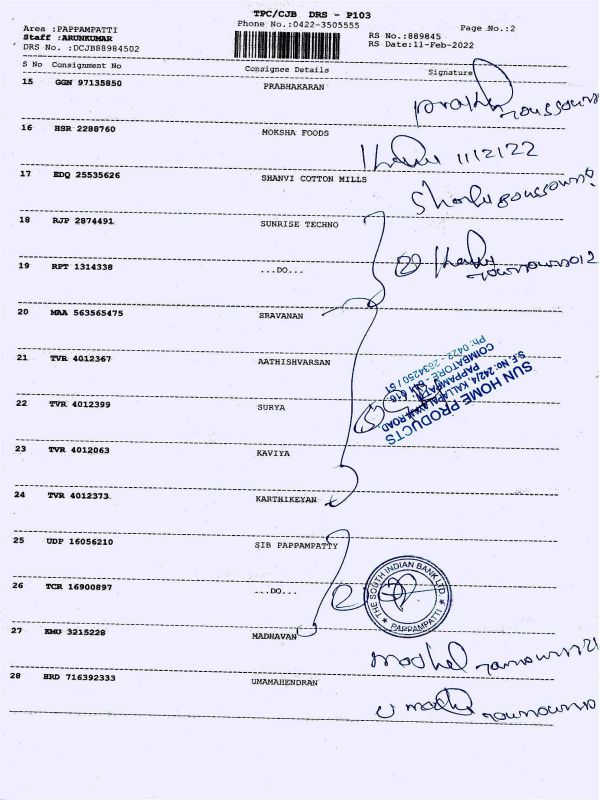 TPC/CJB DRS - P103
Phone No.:0422-3505555
Page No.:2
Area :PAPPAMPATTI
Staff :ARUNKUMAR
DRS No. :DCJB88984502
RS No.:889845
RS Date:11-Feb-2022
S No Consignment No Consignee Details Signature
15 GGN 97135850 PRABHAKARAN
16 HSR 2288760 MOKSHA FOODS
11/2/22
17 EDQ 25535626 SHANVI COTTON MILLS
18 RJP 2874491 SUNRISE TECHNO
19 RPT 1314338 ...DO...
20 MAA 563565475 SRAVANAN
21 TVR 4012367 AATHISHVARSAN
22 TVR 4012399 SURYA
SUN HOME PRODUCTS
S.F. No. 242/4 KALLAPALAYAM ROAD,
PAPPAMPATTI
COIMBATORE
Ph: 0422 - 2634250 / 51
23 TVR 4012063 KAVIYA
24 TVR 4012373 KARTHIKEYAN
25 UDP 16056210 SIB PAPPAMPATTY
26 TCR 16900897 ...DO...
THE SOUTH INDIAN BANK LTD.
★ PAPPAMPATTI ★
27 KMU 3215228 MADHAVAN
28 HRD 716392333 UMAMAHENDRAN